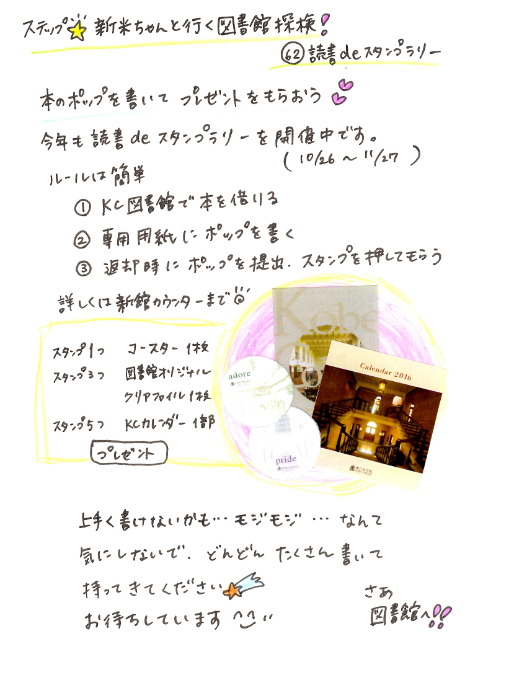 ステップ 新米ちゃんと行く図書館探検!
62 読書deスタンプラリー
本のポップを書いて プレゼントをもらおう
今年も読書deスタンプラリーを開催中です。
(10/26~11/27)
ルールは簡単
① KC図書館で本を借りる
② 専用用紙にポップを書く
③ 返却時にポップを提出、スタンプを押してもらう
詳しくは新館カウンターまで
スタンプ1つ コースター 1枚
スタンプ3つ 図書館オリジナル
クリアファイル 1枚
スタンプ5つ KCカレンダー 1部
プレゼント
Kobe
C
adore
pride
Calendar 2016
上手く書けないかも…モジモジ…なんて
気にしないで、どんどん たくさん書いて
持ってきてください
お待ちしています
さあ
図書館へ!!